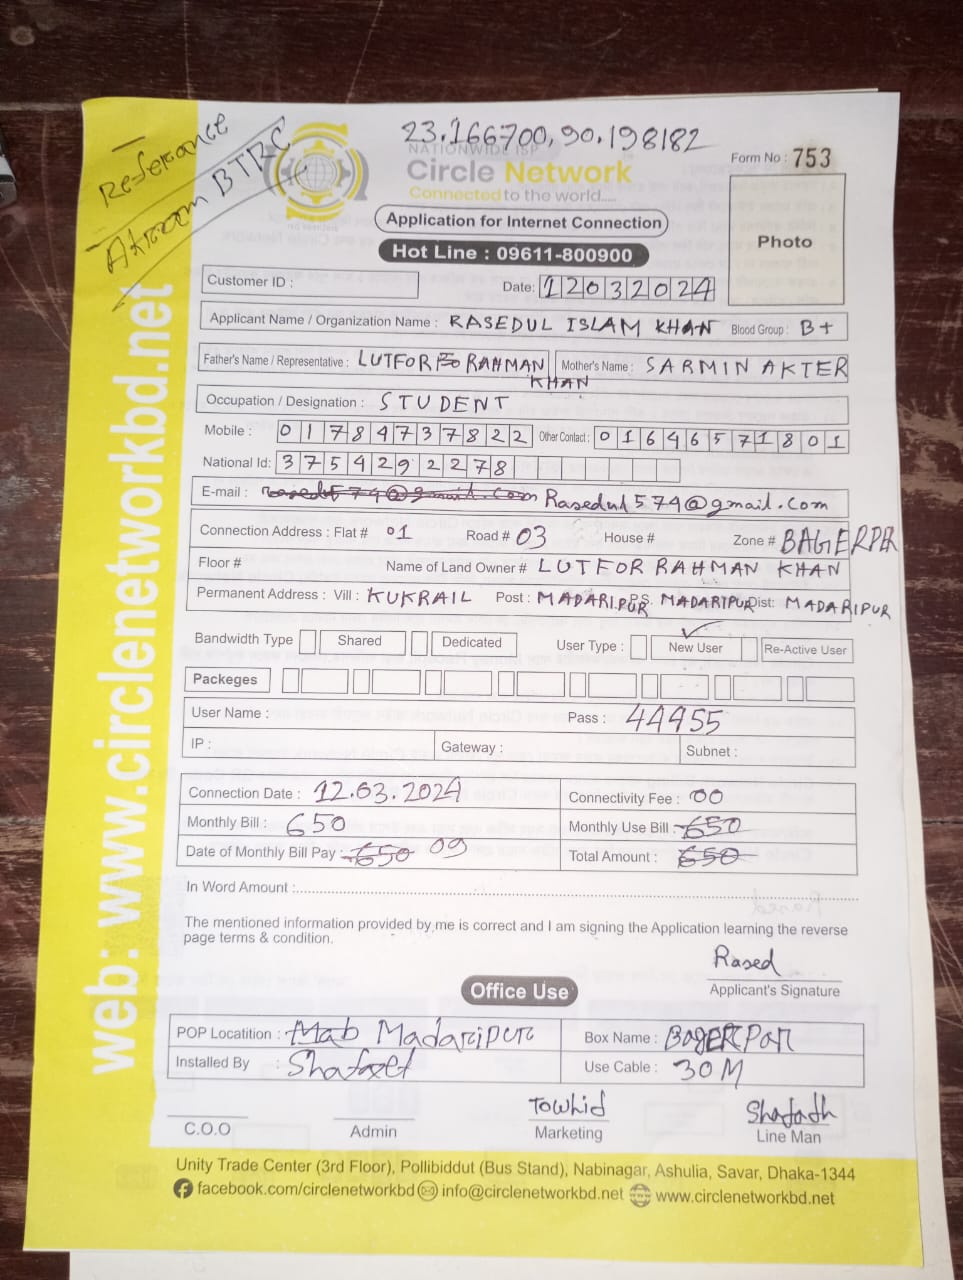 Referance
Akram BTRC
23.166700,90.198182
NATIONWIDE ISP
Circle Network
Connected to the world.....
Form No : 753
Application for Internet Connection
Photo
Hot Line : 09611-800900
Customer ID :
Date: 12032024
Applicant Name / Organization Name : RASEDUL ISLAM KHAN Blood Group : B+
Father's Name / Representative : LUTFOR RAHMAN KHAN Mother's Name : SARMIN AKTER
Occupation / Designation : STUDENT
Mobile : 01784737822 Other Contact : 01646571801
National Id: 3754292278
E-mail : Rasedul579@gmail.com Rasedul579@gmail.com
Connection Address : Flat # 01 Road # 03 House # Zone # BAGERPER
Floor # Name of Land Owner # LUTFOR RAHMAN KHAN
Permanent Address : Vill : KUKRAIL Post : MADARIPUR P.S. MADARIPUR Dist: MADARIPUR
Bandwidth Type Shared Dedicated User Type : New User Re-Active User
Packeges
User Name : Pass : 44955
IP : Gateway : Subnet :
Connection Date : 12.03.2024 Connectivity Fee : 00
Monthly Bill : 650 Monthly Use Bill : 650
Date of Monthly Bill Pay : 650 09 Total Amount : 650
In Word Amount :
The mentioned information provided by me is correct and I am signing the Application learning the reverse
page terms & condition.
Rased
Applicant's Signature
Office Use
POP Locatition : Madaripur Box Name : BagERPAR
Installed By : Use Cable : 30M
Towhid
C.O.O Admin Marketing Line Man
Unity Trade Center (3rd Floor), Pollibiddut (Bus Stand), Nabinagar, Ashulia, Savar, Dhaka-1344
facebook.com/circlenetworkbd info@circlenetworkbd.net www.circlenetworkbd.net
web: www.circlenetworkbd.net